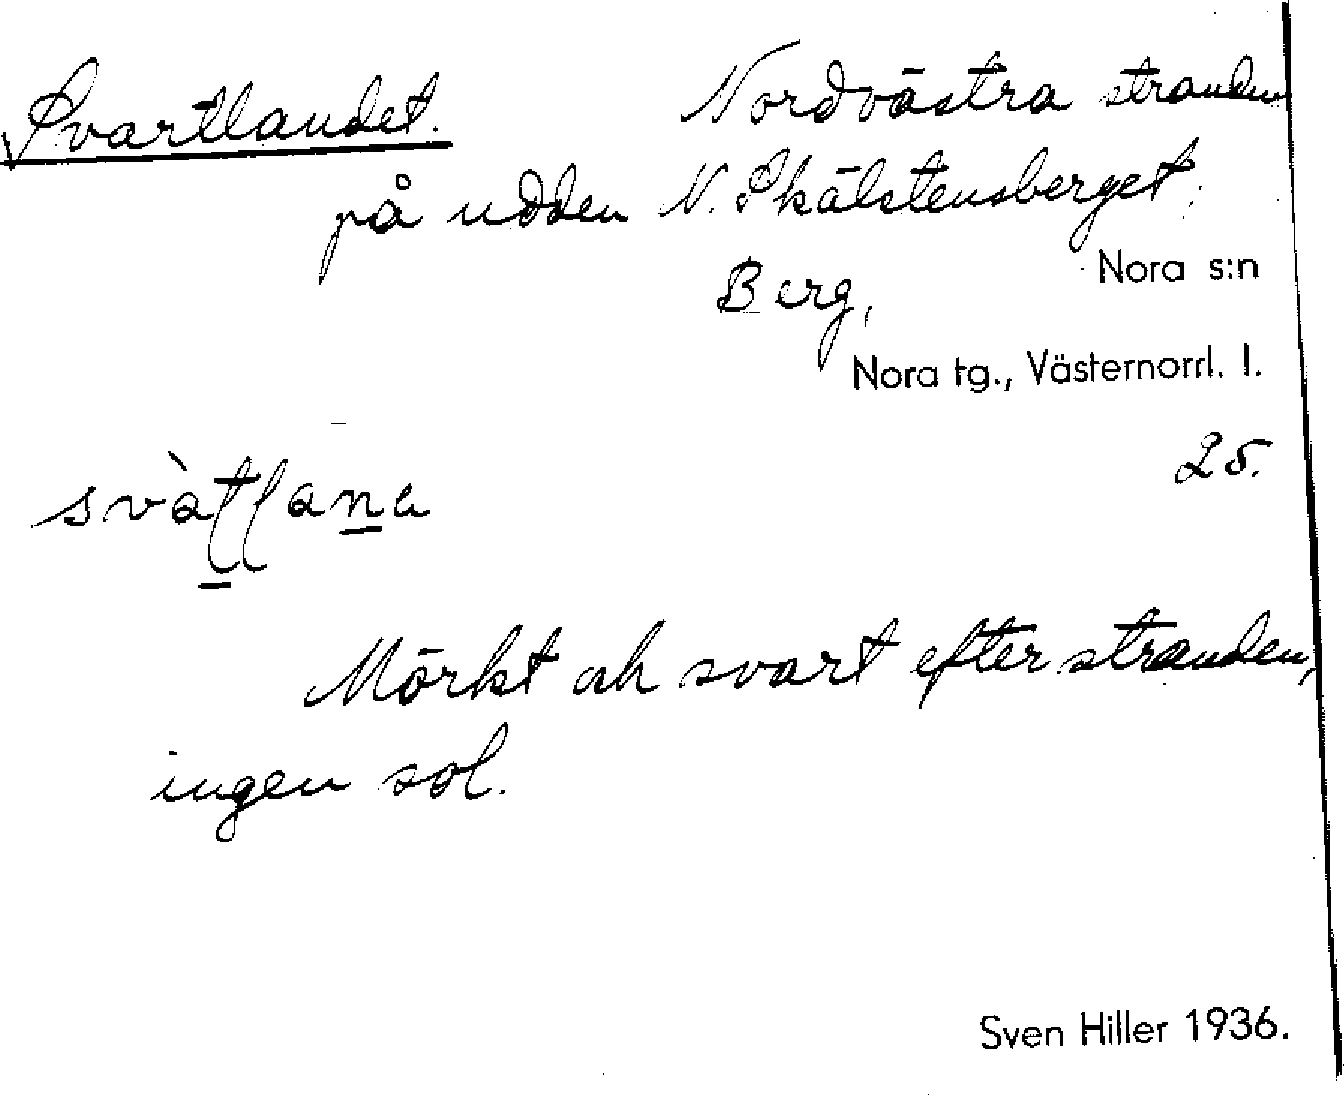 Svartlandet. Nordvästra stranden
på udden N. Skälstensberget,
Berg, Nora s:n
Nora tg., Västernorrl. l.
25.
Mörkt och svart efter stranden,
ingen sol.
Sven Hiller 1936.